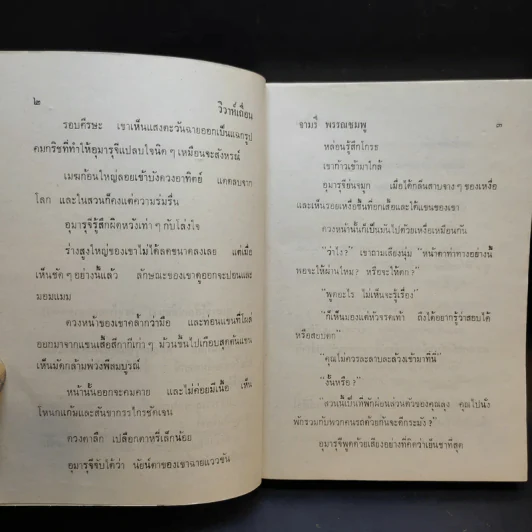 ๒ วิวาห์เถื่อน
รอบศีรษะ เขาเห็นแสงตะวันฉายออกเป็นแฉกรูป
คมกริชที่ทำให้อุมารุจีแปลบใจนิด ๆ เหมือนจะสังหรณ์
เมฆก้อนใหญ่ลอยเข้าบังดวงอาทิตย์ แดดลบจาก
โลก และในสวนก็คงแต่ความร่มรื่น
อุมารุจีรู้สึกผิดหวังเท่า ๆ กับโล่งใจ
ร่างสูงใหญ่ของเขาไม่ได้ลดขนาดลงเลย แต่เมื่อ
เห็นชัด ๆ อย่างนี้แล้ว ลักษณะของเขาดูออกจะปอนและ
มอมแมม
ดวงหน้าของเขาคล้ำกว่ามือ และท่อนแขนที่โผล่
ออกมาจากแขนเสื้อสีกากีเก่า ๆ ม้วนขึ้นไปเกือบสุดต้นแขน
เห็นมัดกล้ามพ่วงพีสมบูรณ์
หน้านั้นออกจะคมคาย และไม่ค่อยมีเนื้อ เห็น
โหนกแก้มและสันขากรรไกรชัดเจน
ดวงตาลึก เปลือกตาหรี่เล็กน้อย
อุมารุจีจับได้ว่า นัยน์ตาของเขาฉายแววขัน
จามรี พรรณชมพู ๓
หล่อนรู้สึกโกรธ
เขาก้าวเข้ามาใกล้
อุมารุจีย่นจมูก เมื่อได้กลิ่นสาบจาง ๆ ของเหงื่อ
และเห็นรอยเหงื่อชื้นที่อกเสื้อและใต้แขนของเขา
ดวงหน้านั้นก็เป็นมันไปด้วยเหงื่อเหมือนกัน
“ว่าไง?” เขาถามเสียงนุ่ม “หน้าตาท่าทางอย่างนี้
พอจะให้ผ่านไหม? หรือจะให้ตก?”
“พูดอะไร ไม่เห็นจะรู้เรื่อง”
“ก็เห็นมองแต่หัวจรดเท้า ถึงได้อยากรู้ว่าสอบได้
หรือสอบตก”
“คุณไม่ควรละลาบละล้วงเข้ามาที่นี่”
“งั้นหรือ?”
“สวนนี้เป็นที่พักผ่อนส่วนตัวของคุณลุง คุณไปนั่ง
พักรวมกับพวกคนรถด้วยกันจะดีกระมัง?”
อุมารุจีพูดด้วยเสียงอย่างที่คิดว่าเย็นชาที่สุด